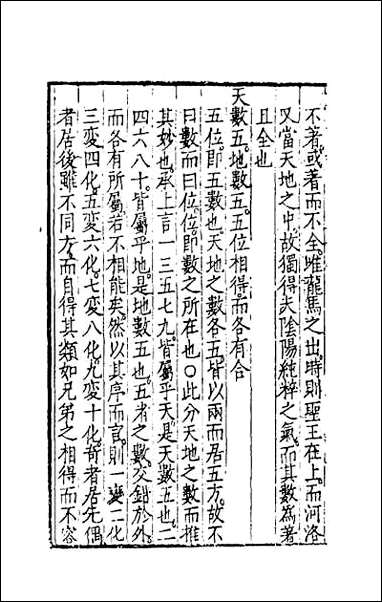 不著或著而不全唯龍馬之出時則聖王在上而河洛
又當天地之中故獨得夫陰陽純粹之氣而其數為著
且全也
天數五地數五五位相得而各有合
五位即五數也天地之數各五皆以兩而居五方故不
曰數而曰位位即數之所在也○此分天地之數而推
其妙也承上言一三五七九皆屬乎天是天數五也二
四六八十皆屬乎地是地數五也五者之數交錯於外
而各有所屬若不相能矣然以其序而言則一變二化
三変四化五変六化七变八化九変十化奇者居先偶
者居後雖不同方而自得其類如兄弟之相得而不容